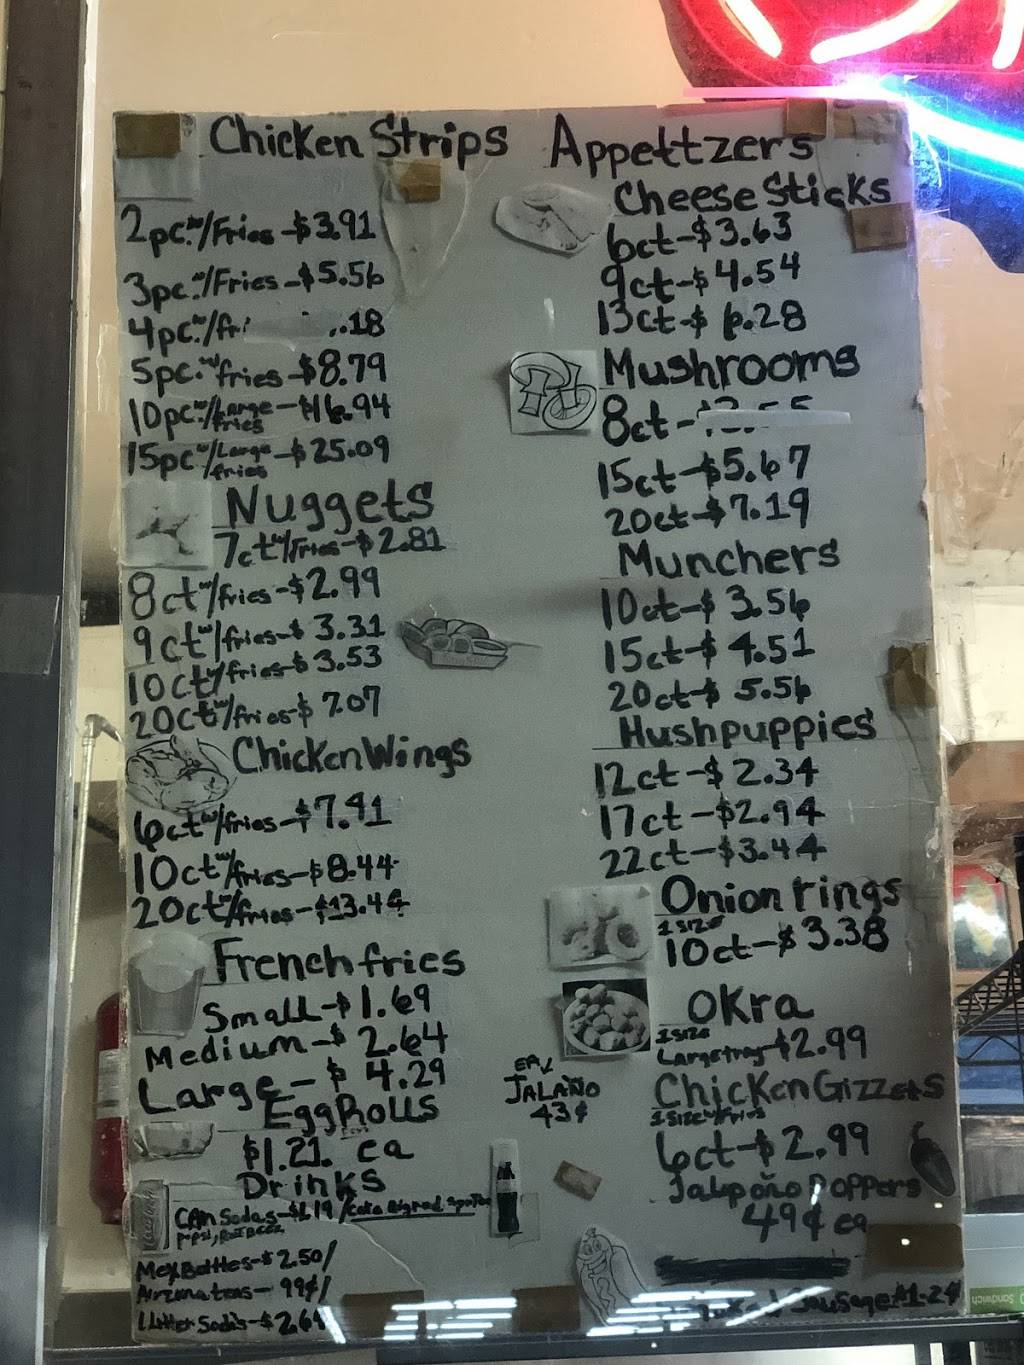 Chicken Strips
2pc.w/Fries-$3.91
3pc.w/Fries-$5.56
4pc.w/fri .18
5pc.w/fries-$8.79
10pc.w/Large fries-$16.94
15pc w/Large fries-$25.09
Nuggets
7ct w/Fries-$2.81
8ct w/fries-$2.99
9ct w/fries-$3.31
10ct w/fries-$3.53
20ct w/fries-$7.07
Chicken Wings
6ct w/fries-$7.41
10ct w/fries-$8.44
20ct w/fries-$13.44
French fries
Small-$1.69
Medium-$2.64
Large-$4.29
Egg Rolls
$1.21. ea
Drinks
CAn Sodas-$1.19/Coke
Pepsi, Root Beer
Mex Bottles-$2.50/
Arizona teas-99¢/
Litter Soda's-$2.69
Appettzers
Cheese Sticks
6ct-$3.63
9ct-$4.54
13ct-$6.28
Mushrooms
8ct-
15ct-$5.67
20ct-$7.19
Munchers
10ct-$3.56
15ct-$4.51
20ct-$5.56
Hushpuppies
12ct-$2.34
17ct-$2.94
22ct-$3.44
Onion rings
1 Size
10ct-$3.38
OKra
1 Size
Large tray-$2.99
EA.
JALAÑO
43¢
Chicken Gizzets
1 Size w/fries
6ct-$2.99
Jalpoño Poppers
49¢ ea
Sausage $1.24
Sandwich